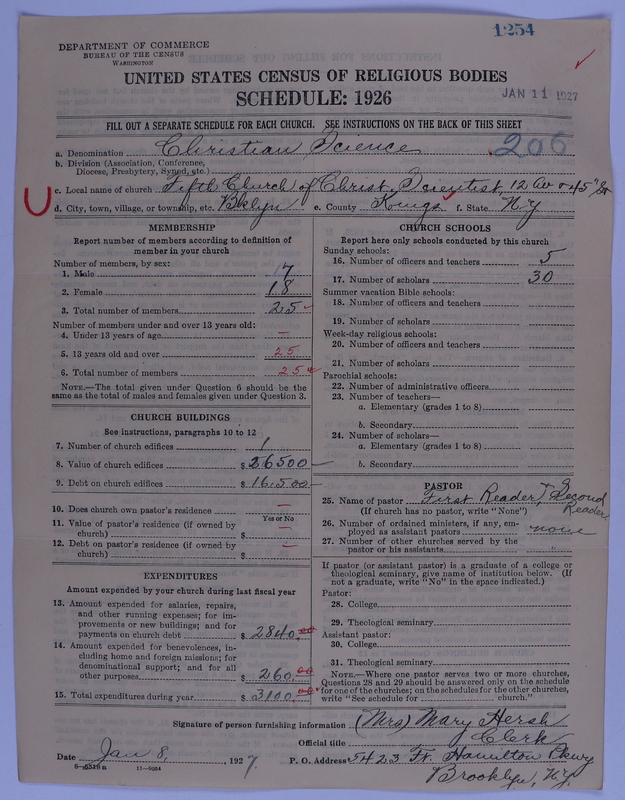 1254
DEPARTMENT OF COMMERCE
BUREAU OF THE CENSUS
WASHINGTON
UNITED STATES CENSUS OF RELIGIOUS BODIES
SCHEDULE: 1926
JAN 11 1927
FILL OUT A SEPARATE SCHEDULE FOR EACH CHURCH. SEE INSTRUCTIONS ON THE BACK OF THIS SHEET
a. Denomination Christian Science 206
b. Division (Association, Conference, Diocese, Presbytery, Synod, etc.)
c. Local name of church Fifth Church of Christ, Scientist, 12 Av & 45" St
d. City, town, village, or township, etc. Bklyn e. County Kings f. State N.Y
MEMBERSHIP
Report number of members according to definition of
member in your church
Number of members, by sex:
1. Male 7
2. Female 18
3. Total number of members 25
Number of members under and over 13 years old:
4. Under 13 years of age —
5. 13 years old and over 25
6. Total number of members 25
NOTE.—The total given under Question 6 should be the
same as the total of males and females given under Question 3.
CHURCH BUILDINGS
See instructions, paragraphs 10 to 12
7. Number of church edifices 1
8. Value of church edifices $ 26500
9. Debt on church edifices $ 16,500
10. Does church own pastor's residence —
Yes or No
11. Value of pastor's residence (if owned by
church) $ —
12. Debt on pastor's residence (if owned by
church) $ —
EXPENDITURES
Amount expended by your church during last fiscal year
13. Amount expended for salaries, repairs,
and other running expenses; for im-
provements or new buildings; and for
payments on church debt $ 2840.00
14. Amount expended for benevolences, in-
cluding home and foreign missions; for
denominational support; and for all
other purposes $ 260.00
15. Total expenditures during year $ 3100.00
CHURCH SCHOOLS
Report here only schools conducted by this church
Sunday schools:
16. Number of officers and teachers 5
17. Number of scholars 30
Summer vacation Bible schools:
18. Number of officers and teachers
19. Number of scholars
Week-day religious schools:
20. Number of officers and teachers
21. Number of scholars
Parochial schools:
22. Number of administrative officers
23. Number of teachers—
a. Elementary (grades 1 to 8)
b. Secondary
24. Number of scholars—
a. Elementary (grades 1 to 8)
b. Secondary
PASTOR
25. Name of pastor First Reader & Second Reader
(If church has no pastor, write "None")
26. Number of ordained ministers, if any, em-
ployed as assistant pastors none
27. Number of other churches served by the
pastor or his assistants "
If pastor (or assistant pastor) is a graduate of a college or
theological seminary, give name of institution below. (If
not a graduate, write "No" in the space indicated.)
Pastor:
28. College
29. Theological seminary
Assistant pastor:
30. College
31. Theological seminary
NOTE.—Where one pastor serves two or more churches,
Questions 28 and 29 should be answered only on the schedule
for one of the churches; on the schedules for the other churches,
write "See schedule for church."
Signature of person furnishing information (Mrs) Mary Hersh
Official title Clerk
Date Jan 8, 1927. P. O. Address 5423 Ft. Hamilton Pkwy
Brooklyn, N.Y.
8-5518a 11-9034